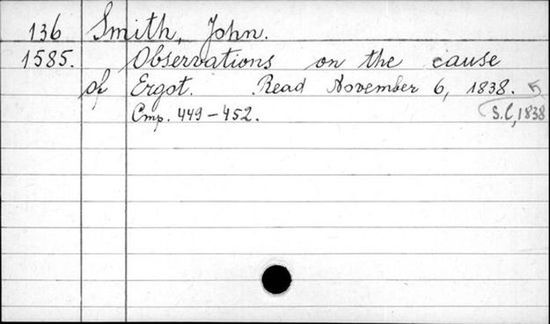 136 Smith, John.
1585. Observations on the cause
of Ergot. Read November 6, 1838.
Cmp. 449-452. S.C, 1838